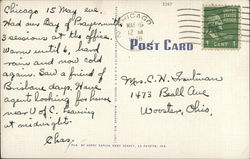 Chicago 15 May eve.
Had our Day of Prayer with
3 sessions at the office.
Warm until 6, hard
rain and now cold
again. Saw a friend of
Brisbane days. Have
agent looking for home
near U of C. Leaving
at midnight.
Chas.
CHICAGO
MAY
12 M
POST CARD
1 CENT 1
Mrs. C. H.
1473 Beall Ave
Wooster, Ohio.